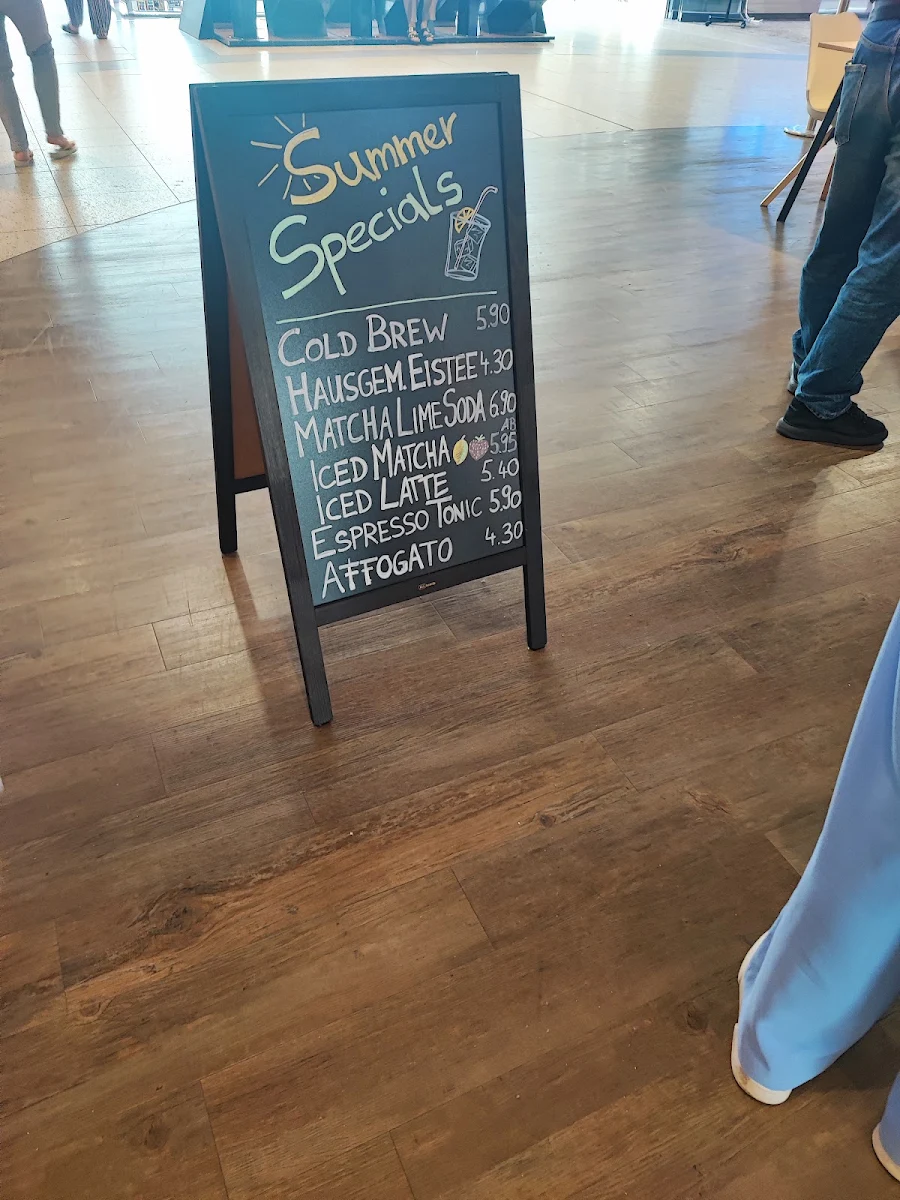 Summer
Specials
COLD BREW 5.90
HAUSGEM. EISTEE 4.30
MATCHA LIME SODA 6.90
ICED MATCHA AB 5.95
ICED LATTE 5.40
ESPRESSO TONIC 5.90
AFFOGATO 4.30